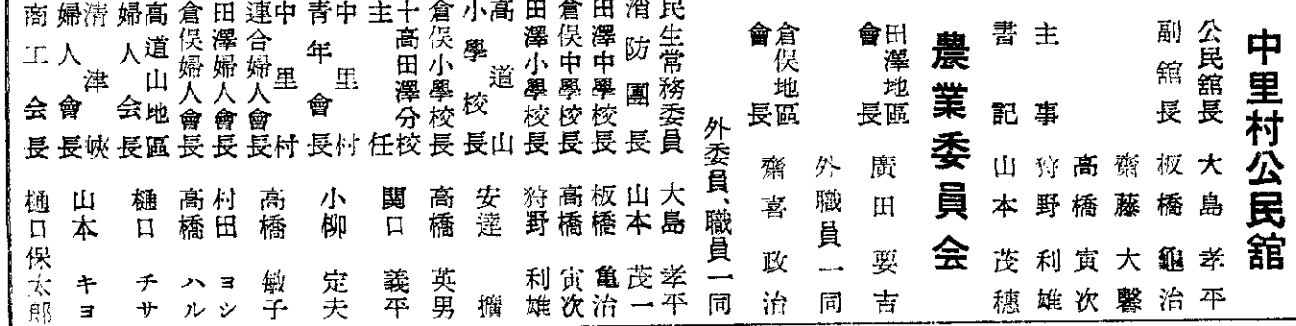 中里村公民舘
公民舘長 大島孝平
副舘長 板橋龜治
齋藤大馨
高橋寅次
主事 狩野利雄
書記 山本茂穗
農業委員会
田澤地區會長 廣田要吉
外職員一同
倉俣地區會長 齋喜政治
外委員、職員一同
民生常務委員 大島孝平
消防團長 山本茂一
田澤中學校長 板橋亀治
倉俣中學校長 高橋寅次
田澤小學校長 狩野利雄
高道山小學校長 安達
倉俣小學校長 高橋英男
十高田澤分校主任 関口義平
中里村青年會長 小柳定夫
中里村連合婦人會長 高橋敏子
田澤婦人會長 村田ヨシ
倉俣婦人會長 高橋ハル
高道山地區婦人会長 樋口チサ
清津峡婦人會長 山本キヨ
商工会長 樋口保太郎